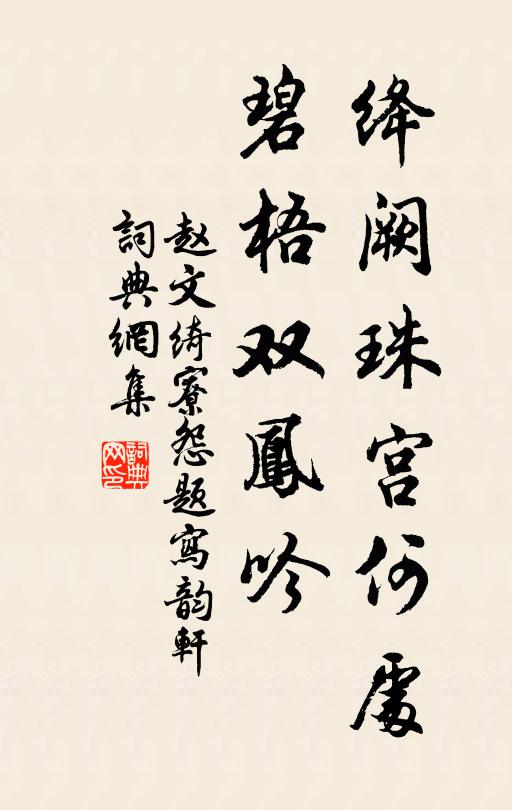 绛阙珠宫何處
碧梧双鳳吟
赵文绮寮怨题寫韵軒
詞典網集
詞典网印